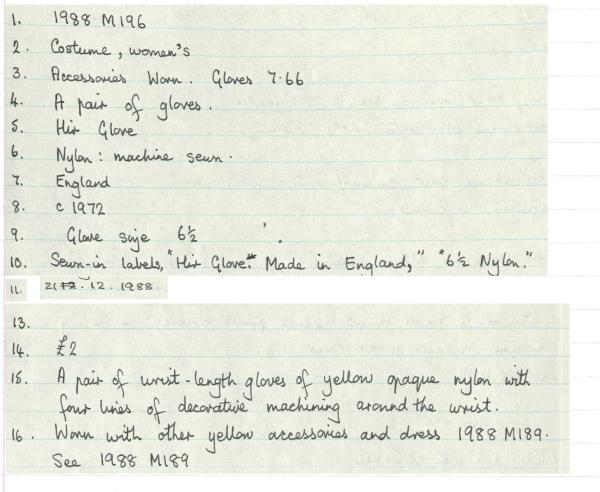 1. 1988 M196
2. Costume, women's
3. Accessories Worn. Gloves 7.66
4. A pair of gloves.
5. Hir Glove
6. Nylon: machine sewn.
7. England
8. c 1972
9. Glove size 6½
10. Sewn-in labels, "Hir Glove" Made in England," "6½ Nylon."
11. 21.12.1988
13.
14. £2
15. A pair of wrist-length gloves of yellow opaque nylon with
four lines of decorative machining around the wrist.
16. Worn with other yellow accessories and dress 1988 M189.
See 1988 M189